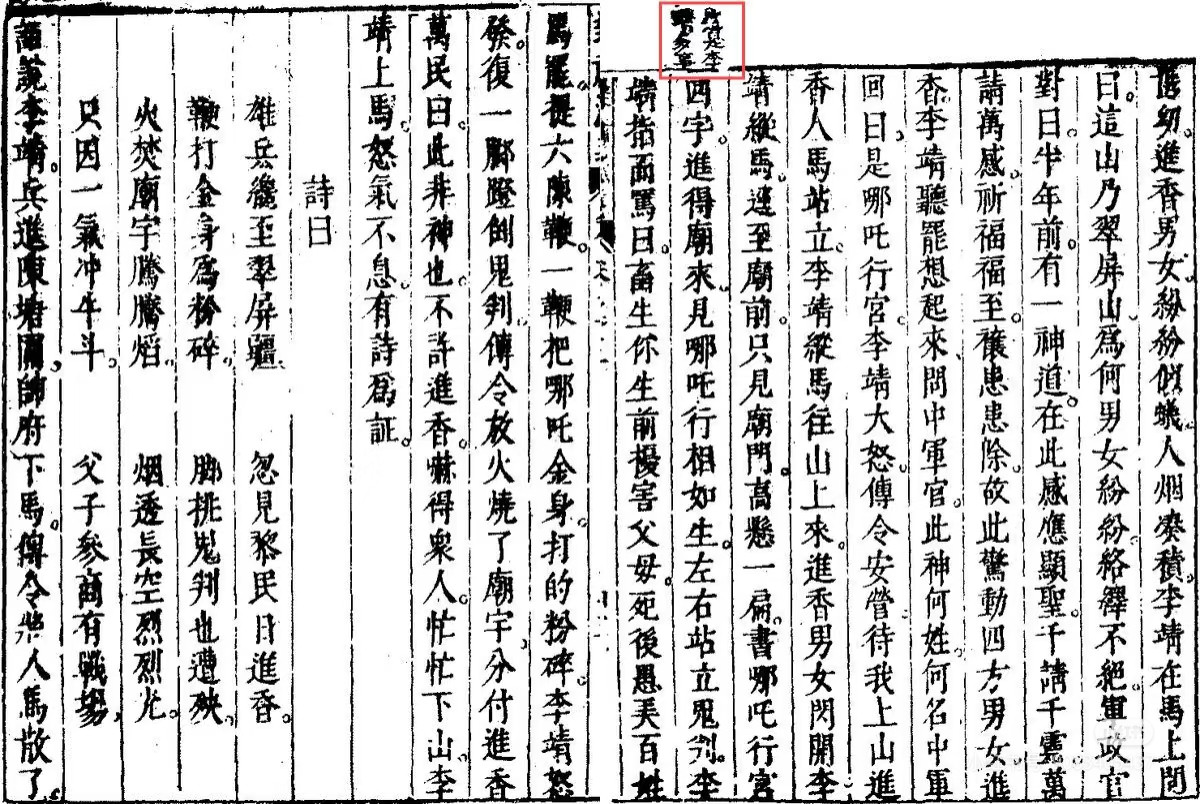 是李
多事
幼。進香男女。紛紛似蟻。人烟湊積。李靖在馬上問
曰。這山乃翠屏山爲何男女紛紛絡繹不絕。軍政官
對曰。半年前。有一神道在此感應顯聖。千請千靈萬
請萬感。祈福福至。禳患患除。故此驚動四方男女進
香。李靖聽罷想起來、問中軍官。此神何姓。何名中軍
回曰、是哪吒行宮。李靖大怒。傳令安營待我上山進
香人馬站立。李靖縱馬往山上來。進香男女閃開。李
靖縱馬。逕至廟前。只見廟門。高懸一扁。書哪吒行宮
四字。進得廟來。見哪吒行相如生。左右站立鬼判。李
靖指而罵曰。畜生你生前擾害父母。死後愚弄百姓
罵罷。提六陳鞭。一鞭把哪吒金身。打的粉碎。李靖怒
發。復一脚蹬倒鬼判。傳令放火燒了廟宇。分付進香
萬民曰。此非神也。不許進香。嚇得衆人。忙忙下山。李
靖上馬。怒氣不息。有詩爲証。
詩曰
雄兵纔至翠屏疆。 忽見黎民日進香。
鞭打金身爲粉碎。 脚挑鬼判也遭殃。
火焚廟宇騰騰焰。 烟透長空烈烈光。
只因一氣冲牛斗。 父子參商有戰場。
話說李靖。兵進陳塘關、帥府下馬。傳令將人馬散了。